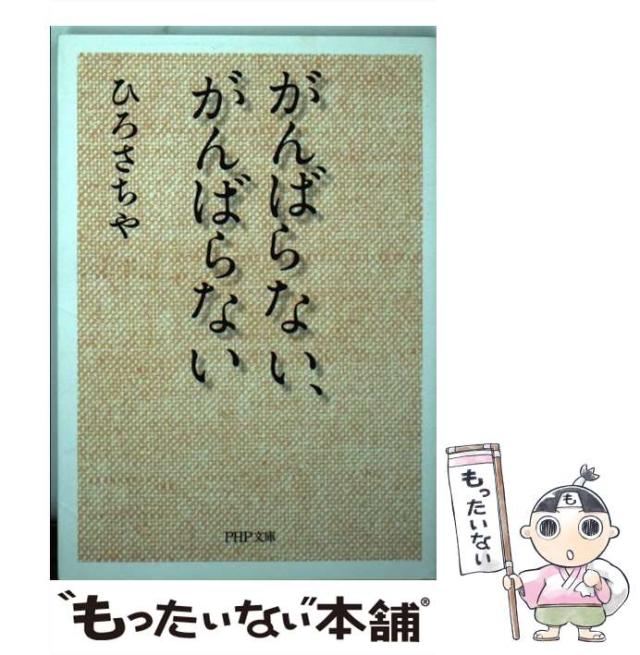 がんばらない、
がんばらない
ひろさちや
PHP文庫
もったいない
も
“もったいない”本舗®